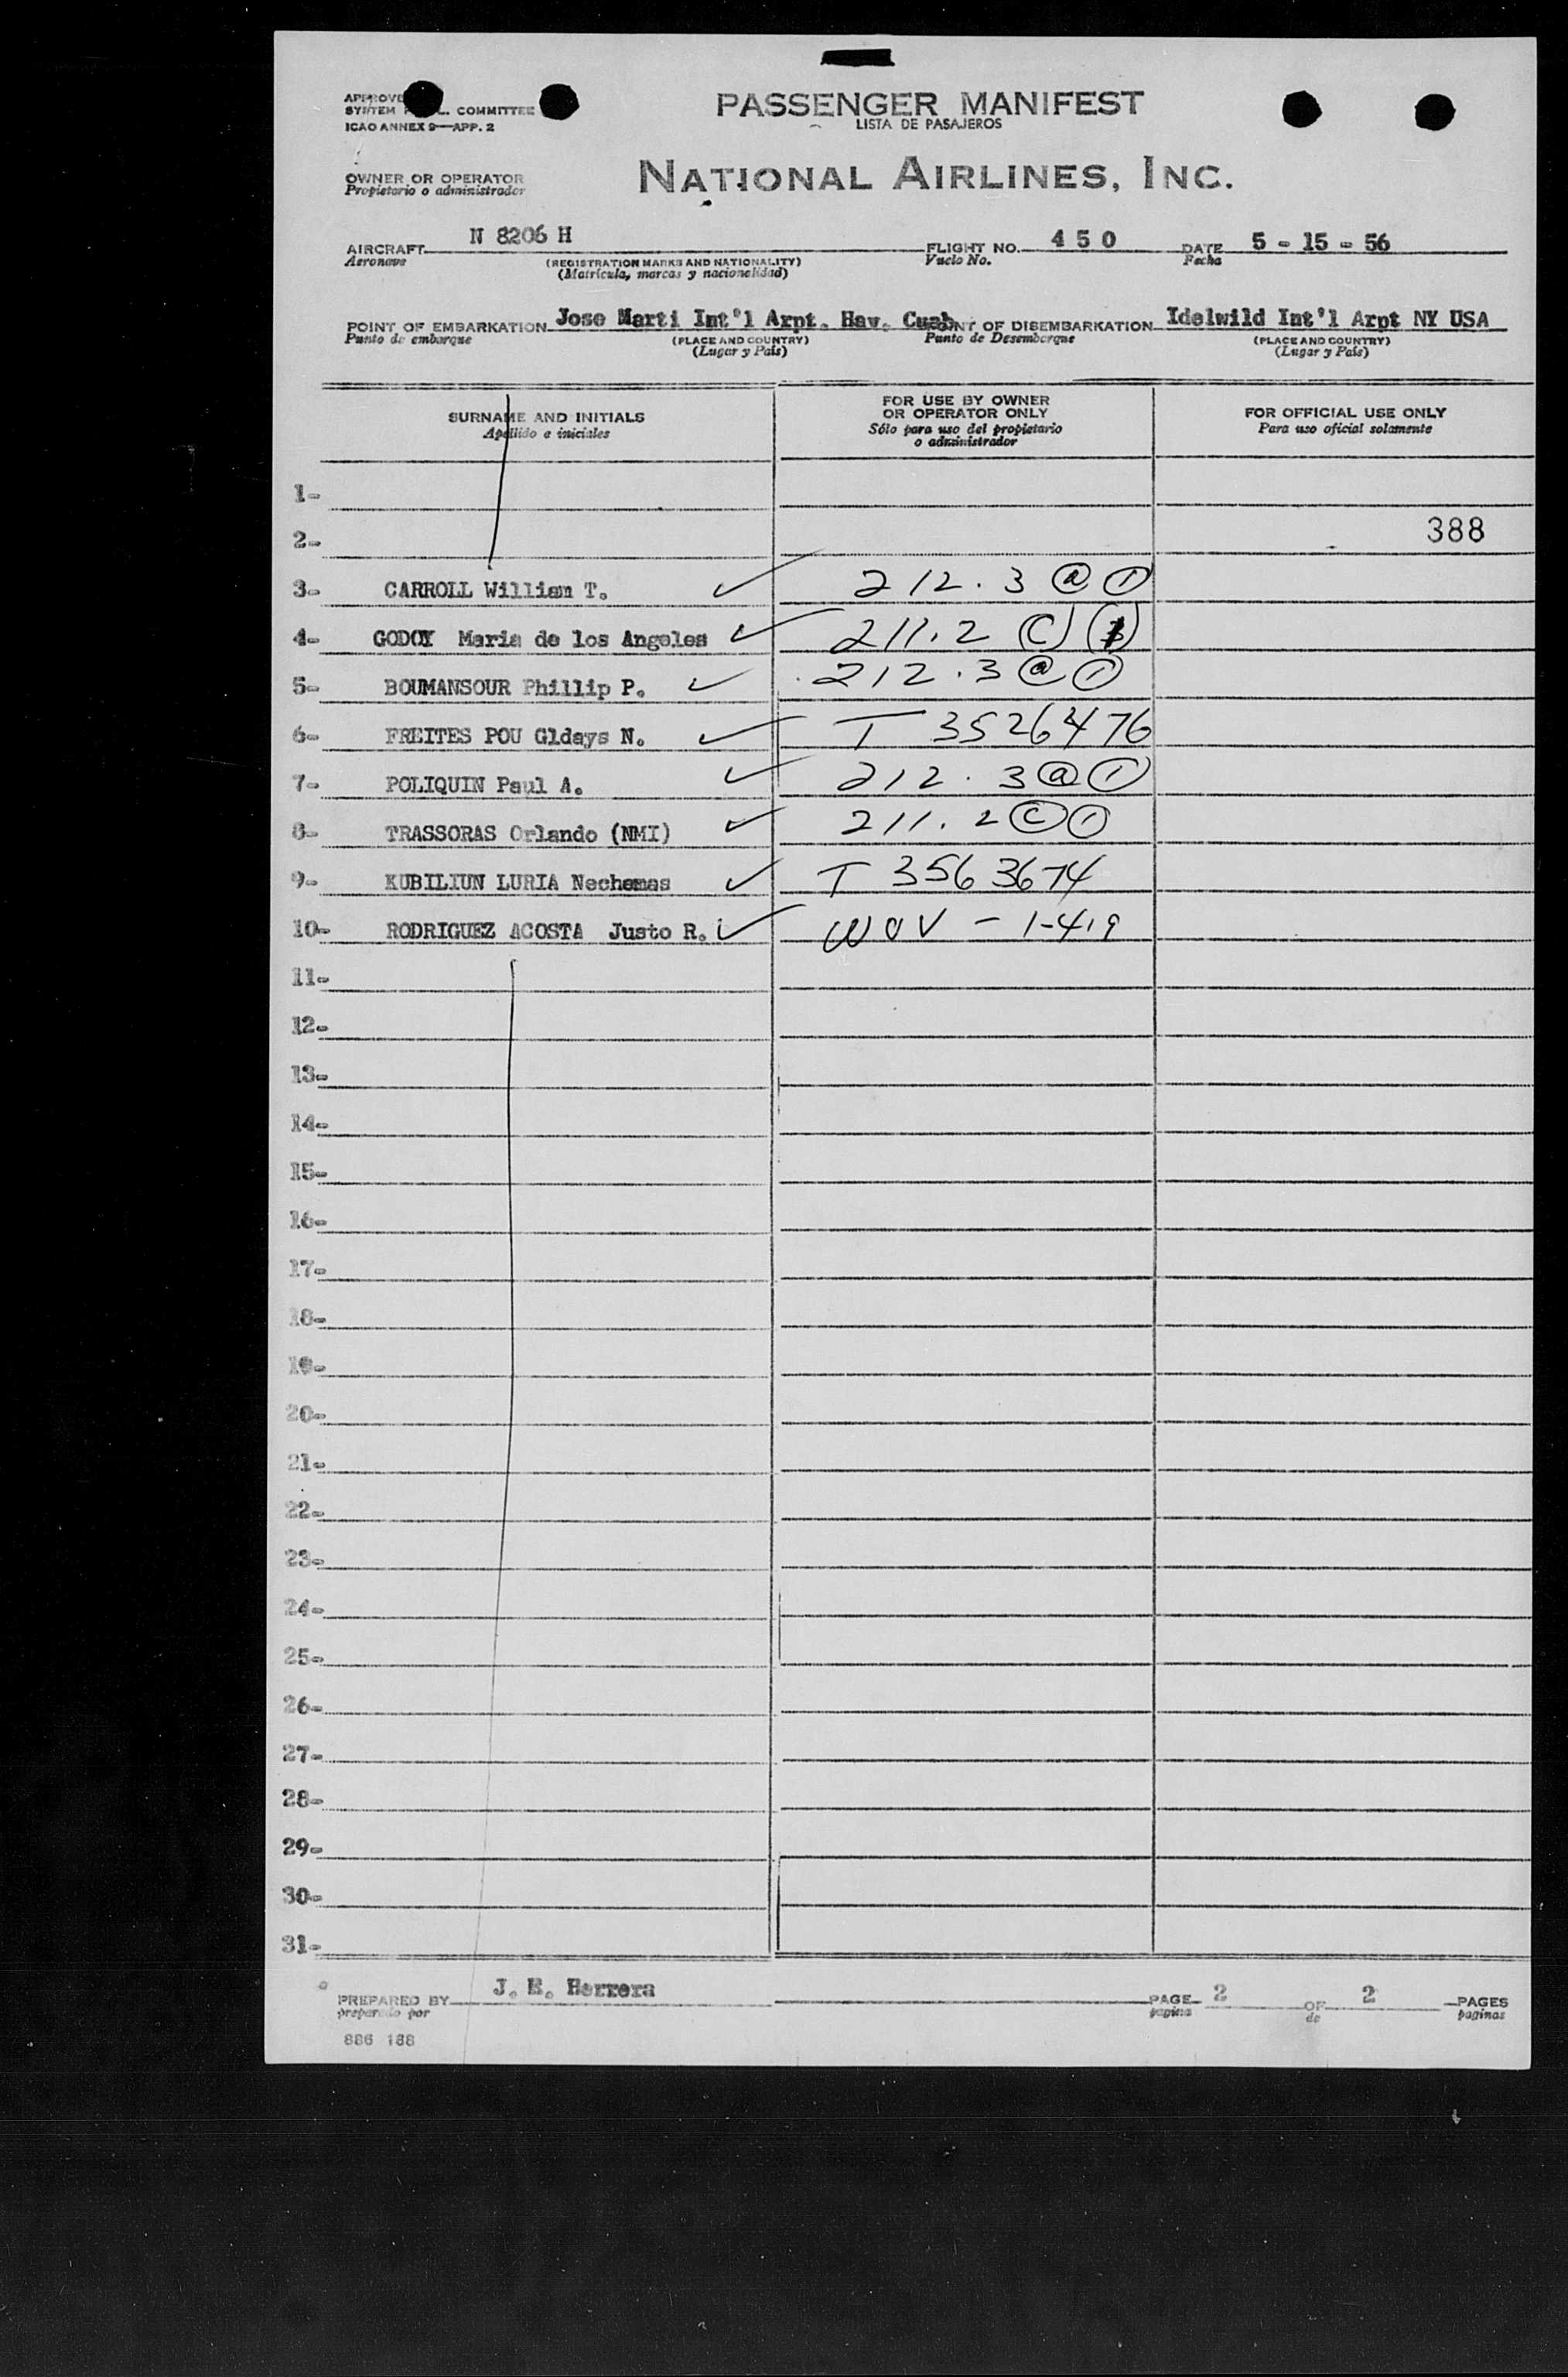 APPROVE
SYSTEM COMMITTEE
ICAO ANNEX 9—APP. 2
PASSENGER MANIFEST
LISTA DE PASAJEROS
OWNER OR OPERATOR
Propietario o administrador
NATIONAL AIRLINES, INC.
AIRCRAFT N 8206 H FLIGHT NO. 4 5 0 DATE 5 - 15 - 56
Aeronave (REGISTRATION MARKS AND NATIONALITY) Vuelo No. Fecha
(Matrícula, marcas y nacionalidad)
POINT OF EMBARKATION Jose Marti Int'l Arpt. Hav. Cuab POINT OF DISEMBARKATION Idelwild Int'l Arpt NY USA
Punto de embarque (PLACE AND COUNTRY) Punto de Desembarque (PLACE AND COUNTRY)
(Lugar y País) (Lugar y País)
SURNAME AND INITIALS
Apellido e iniciales
FOR USE BY OWNER
OR OPERATOR ONLY
Sólo para uso del propietario
o administrador
FOR OFFICIAL USE ONLY
Para uso oficial solamente
1-
2- 388
3- CARROLL William T. ✓ 212.3 (a) (1)
4- GODOY Maria de los Angeles ✓ 211.2 (C) (1)
5- BOUMANSOUR Phillip P. ✓ 212.3 (a) (1)
6- FREITES POU Gldays N. ✓ T 3526476
7- POLIQUIN Paul A. ✓ 212.3 (a) (1)
8- TRASSORAS Orlando (NMI) ✓ 211.2 (C) (1)
9- KUBILIUN LURIA Nechemas ✓ T 3563674
10- RODRIGUEZ ACOSTA Justo R. ✓ WOV - 1-419
11-
12-
13-
14-
15-
16-
17-
18-
19-
20-
21-
22-
23-
24-
25-
26-
27-
28-
29-
30-
31-
PREPARED BY J. E. Herrera PAGE 2 OF 2 PAGES
preparado por pagina de paginas
886 188